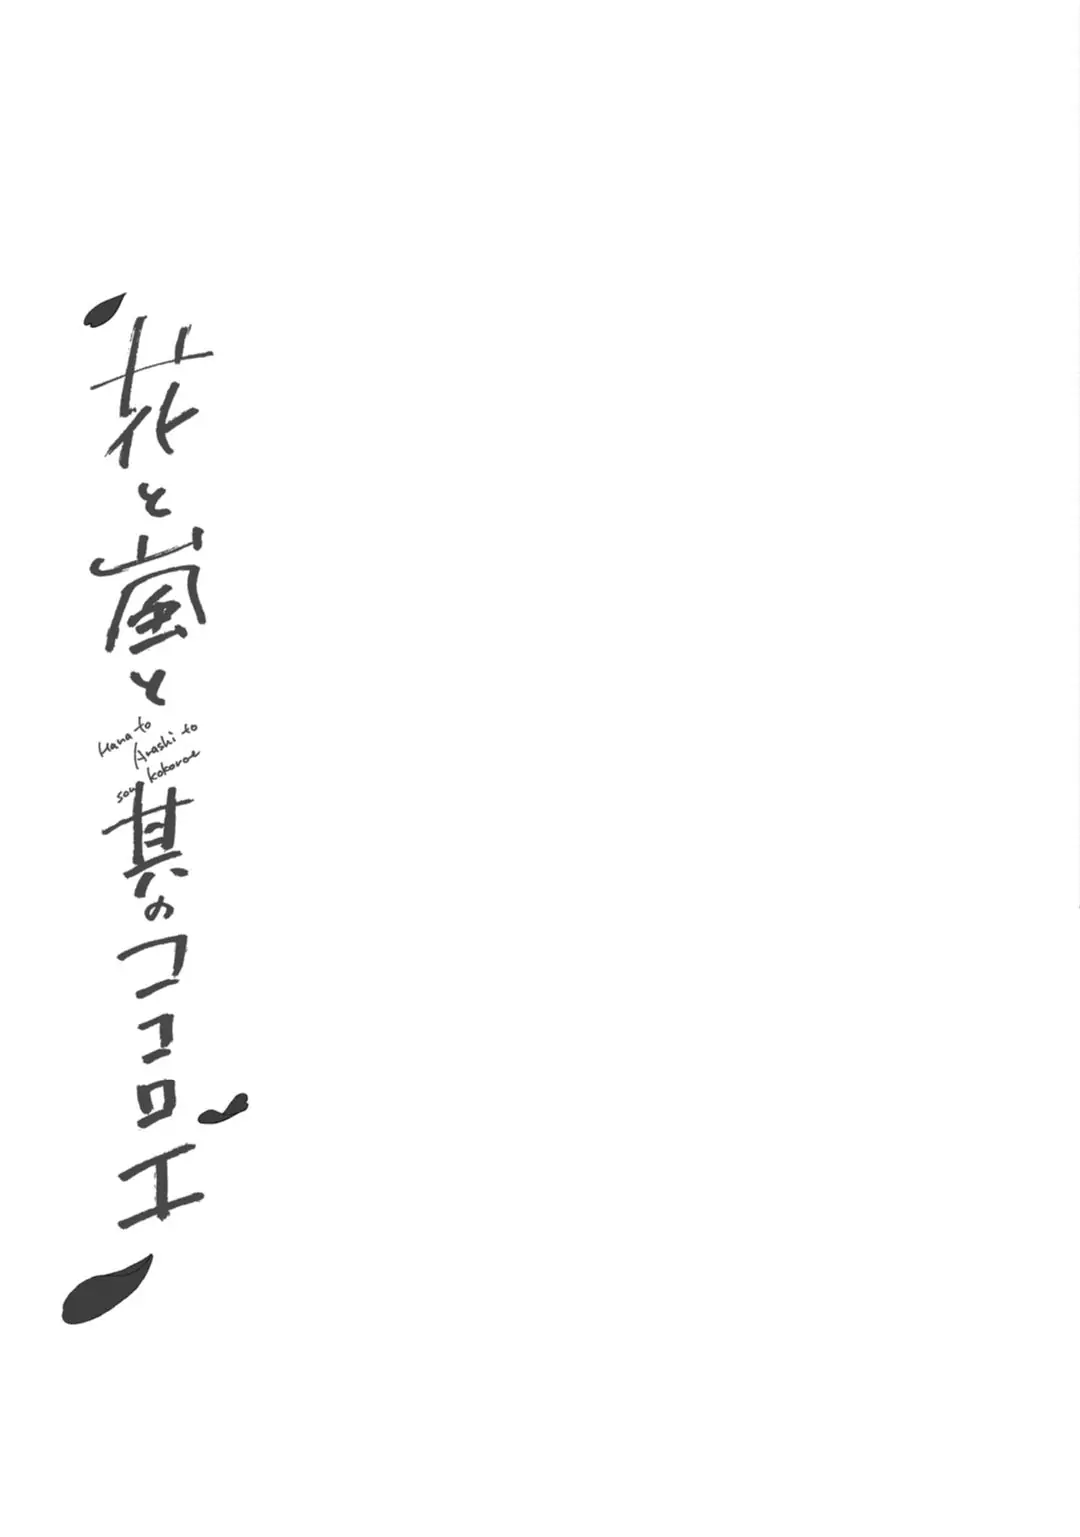 花と嵐と其のココロエ
Hana to
Arashi to
sono kokoroe